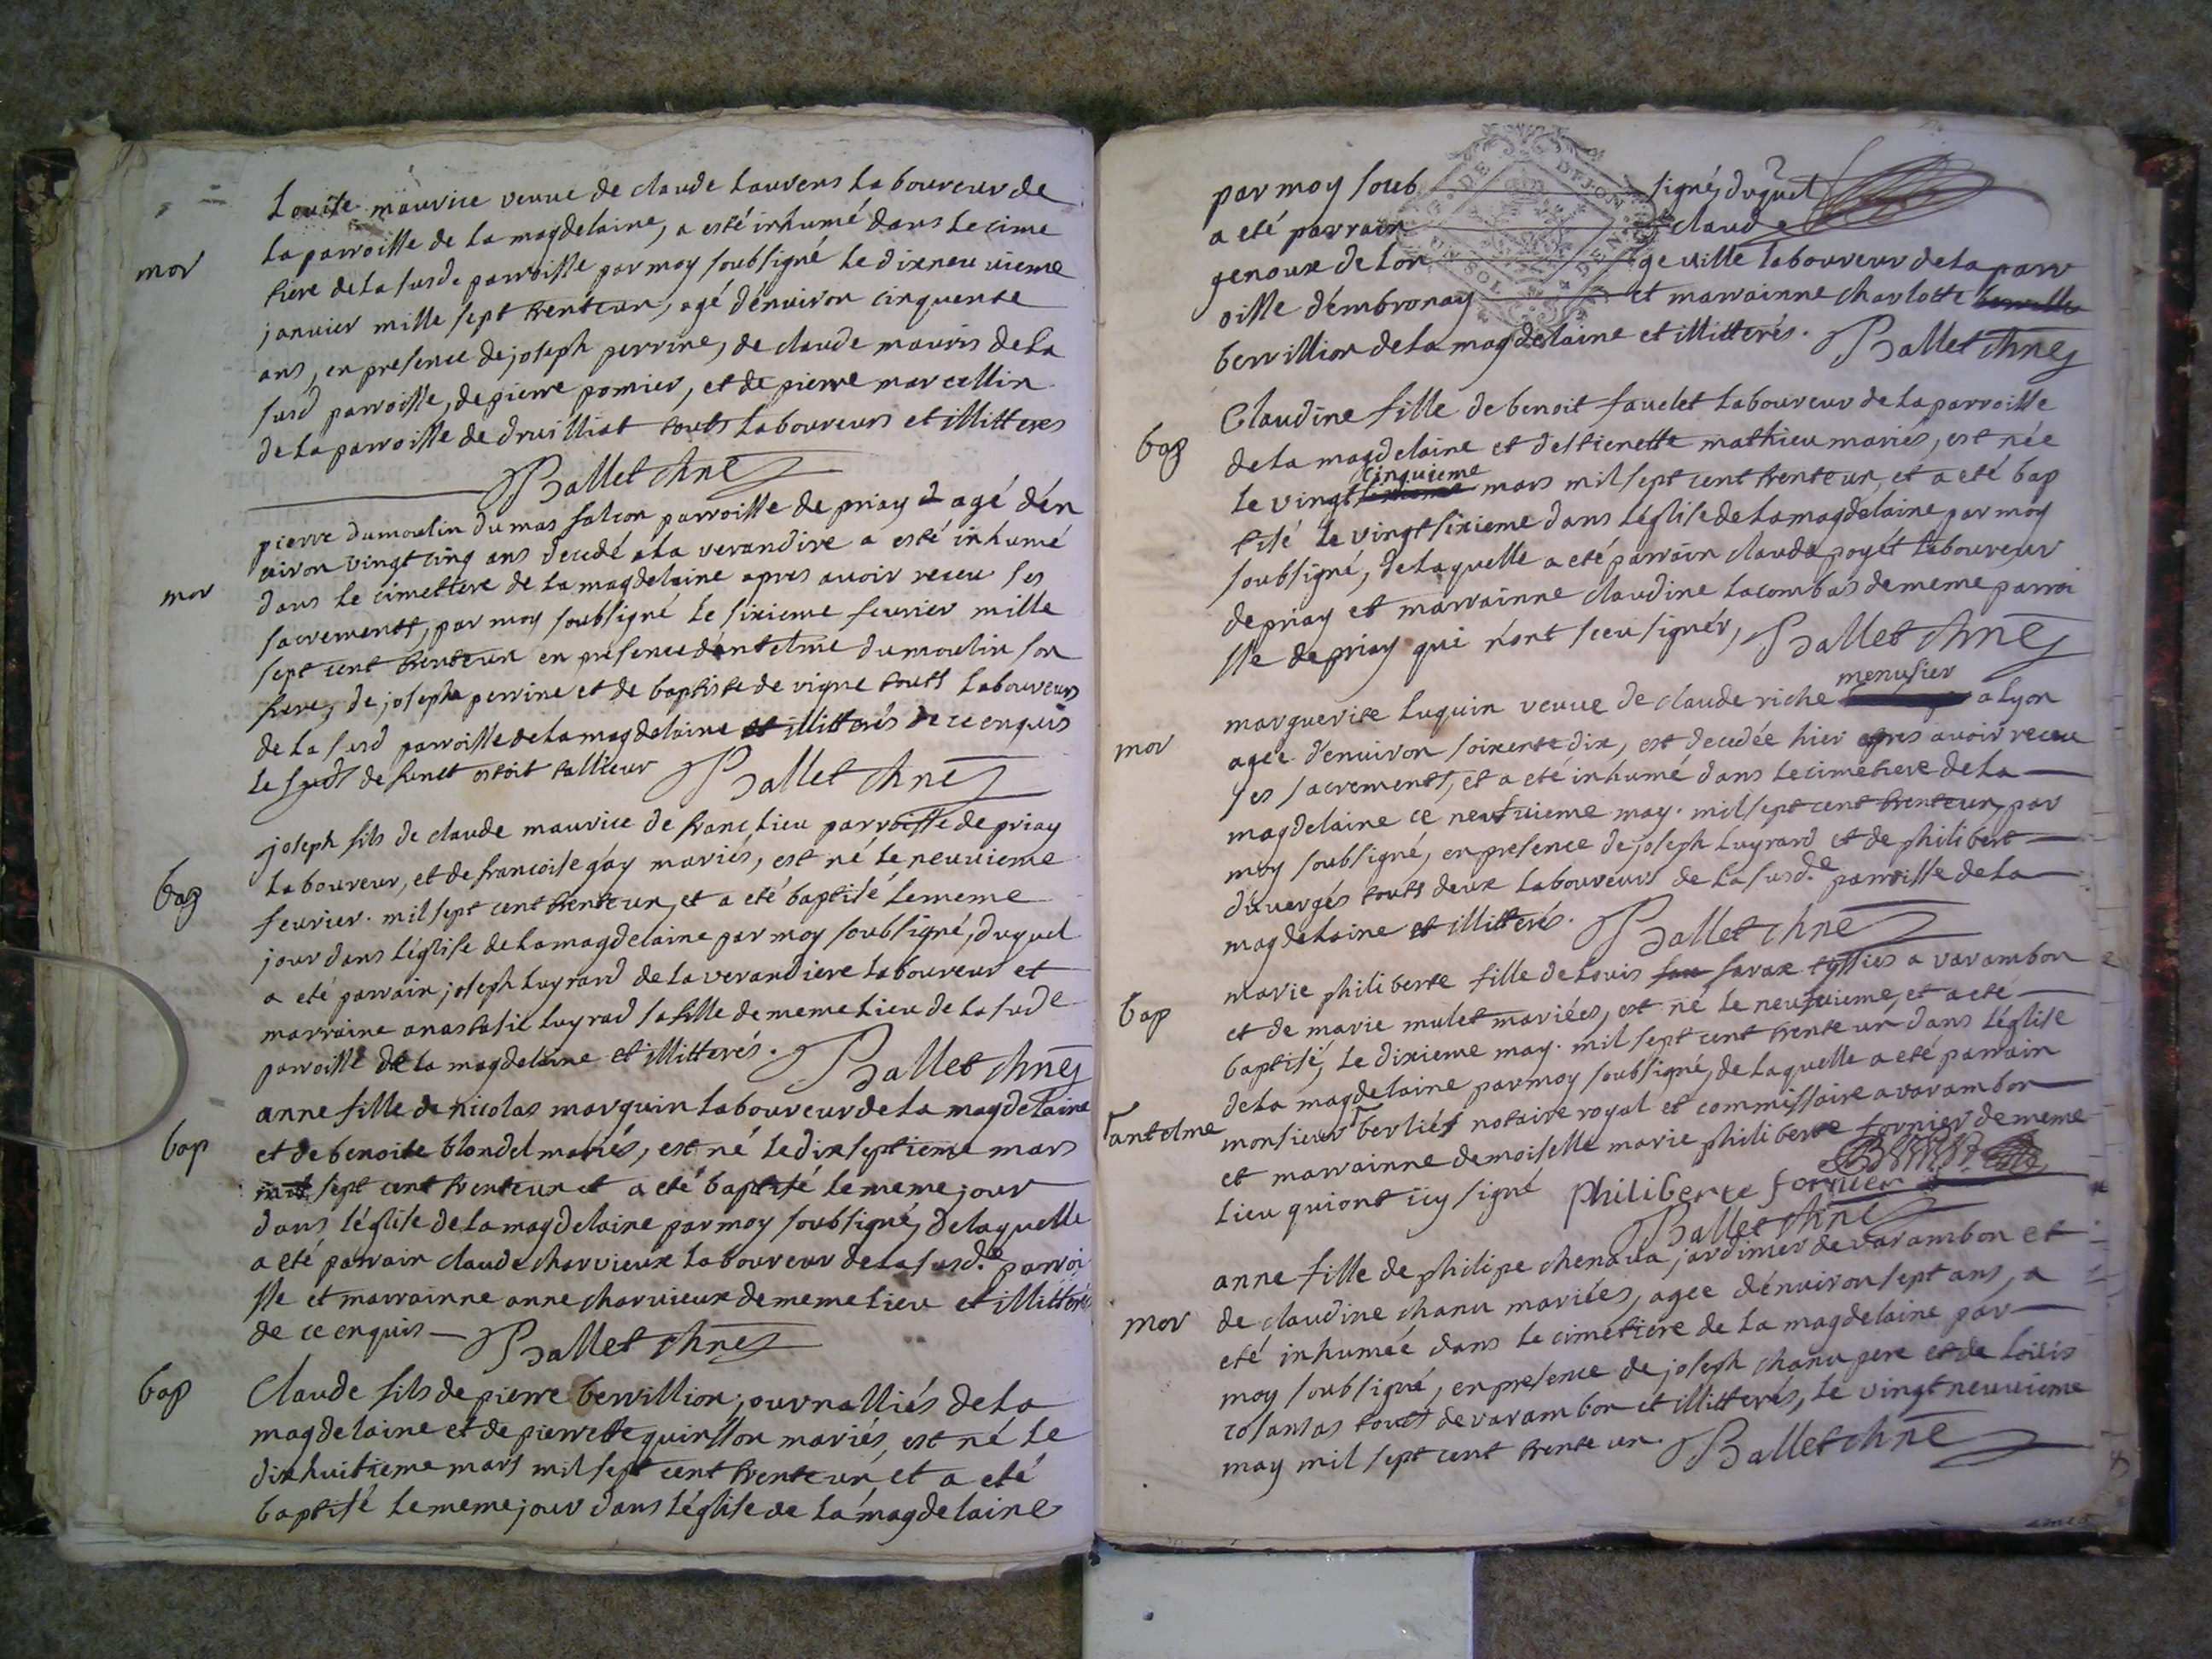 Louise maurice veuve de claude Lauvens Laboureur de
mor
La parroisse de La magdelaine, a esté inhumé dans Le cime
tiere de La susde parroisse par moy soubsigné Le dixneuuieme
januier mille sept trenteun, agé d'enuiron cinquente
ans, en presence de joseph perrine, de claude mauris de La
susd parroisse, de pierre pomier, et de pierre marcellin
de La parroisse de druilliat touts Laboureurs et illitteres
Ballet chne
pierre dumoulin du mas falcon parroisse de priay agé d'en
mor
uiron vingt cinq ans decedé a La verandire a esté inhumé
dans Le cimettere de La magdelaine apres auoir receu ses
sacrements, par moy soubsigné Le sixieme feurier mille
sept cent trenteun en presence dantelme dumoulin son
frere, de joseph perrine et de baptiste de vigne touts Laboureurs
de La susd parroisse de La magdelaine et illitterés de ce enquis
Le susdt defunct estoit tallieur Ballet chne
joseph fils de claude maurice de franc Lieu parroisse de priay
bap
Laboureur, et de francoise gay mariés, est né Le neuuieme
feurier mil sept cent trenteun, et a eté baptisé Le meme
jour dans L'église de La magdelaine par moy soubsigné, duquel
a eté parrain joseph Luyrard de La verandiere Laboureur et
marraine anastasie Luyrad sa fille de meme Lieu de La susde
parroisse de La magdelaine et illitterés. Ballet chne
anne fille de nicolas marquin Laboureur de La magdelaine
bap
et de benoite blondel mariés, est né Le dixseptieme mars
mil sept cent trenteun et a eté baptisé Le meme jour
dans L'église de La magdelaine par moy soubsigné, de Laquelle
a eté parrain claude charvieux Laboureur de La susde parroi
sse et marrainne anne charuieux de meme Lieu et illitterés
de ce enquis Ballet chne
bap
Claude fils de pierre bervillion, journalliés de La
magdelaine et de pierrette quinsson mariés, est né Le
dixhuitieme mars mil sept cent trenteun, et a eté
baptisé Le meme jour dans L'église de La magdelaine
par moy soub signé, duquel
a eté parrain claude
genoux de Lon geuille Laboureur de La parr
oisse d'embronay et marrainne charlotte
bervillion de La magdelaine et illitterés. Ballet chne
Claudine fille de benoit faudet Laboureur de La parroisse
bap
de La magdelaine et d'estienette mathieu mariés, est née
cinquieme
Le vingt mars mil sept cent trenteun, et a eté bap
tisé Le vingt sixieme dans L'église de La magdelaine par moy
soubsigné, de Laquelle a eté parrain claude poyet Laboureur
de priay et marrainne claudine Lacombas de meme parroi
sse de priay qui n'ont sceu signer, Ballet chne
menusier
marguerite Luquin veuue de claude riche a Lyon
mor
agée d'enuiron soixente dix, est decedée hier apres auoir receu
ses sacrements, et a eté inhumé dans Le cimetiere de La
magdelaine ce neufuieme may mil sept cent trenteun, par
moy soubsigné, en presence de joseph Luyrard et de philibert
duvergés touts deux Laboureurs de La susde parroisse de La
magdelaine et illitterés. Ballet chne
marie philiberte fille de Louis savax a varambon
bap
et de marie mulet mariées, est né Le neufuieme, et a eté
baptisé, Le dixieme may mil sept cent trente un dans L'église
de La magdelaine par moy soubsigné, de Laquelle a eté parrain
antelme
monsieur berliet notaire royal et commissaire a varambon
et marrainne demoiselle marie philiberte fornier de meme
Lieu qui ont icy signé philiberte fornier
Ballet chne
anne fille de philipe chenaua, jardinier de varambon et
mor
de claudine chanu mariées, agee d'enuiron sept ans, a
eté inhumée dans Le cimetiere de La magdelaine par
moy soubsigné, en presence de joseph chanu pere et de Louis
cosansas touts de varambon et illitterés, Le vingt neuuieme
may mil sept cent trente un. Ballet chne